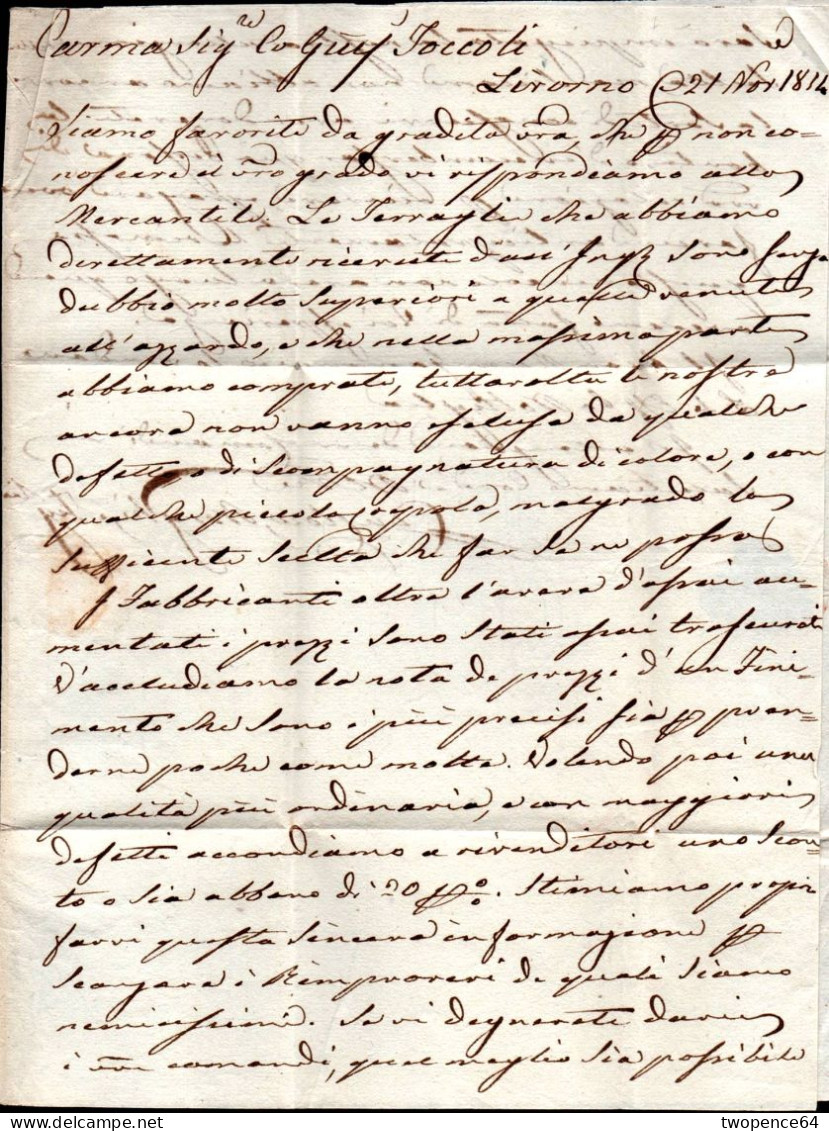 Parma Sig.re Co Gius.e Toccoli
Livorno 21 Nov.e 1814
Siamo favoriti da gradita vra, che p non co=
noscere il vro grado vi rispondiamo alla
Mercantile. Le Terraglie che abbiamo
direttamente ricevute dagl' Ingh sono senza
dubbio molto superiori a queste venute
all'azzardo, e che nella massima parte
abbiamo comprate, tuttavolta le nostre
ancora non vanno escluse da qualche
difetto, o di scompagnatura di colore, o con
qualche piccola, malgrado la
sufficiente scelta che far se ne possa
I Fabbricanti oltre l'avere d'assai au=
mentati i prezzi sono stati assai trascurati
V'accludiamo la nota de prezzi d'un Fini=
mento che sono i più precisi sia p pren=
derne poche come molte. Volendo poi una
qualità più ordinaria, e con maggiori
difetti accordiamo a rivenditori uno scon=
to o sia abbono di 20 p%. Stimiamo propri
farvi questa sincera informazione p
scansare i Rimproveri de quali siamo
nemicissimi. Se vi degnerete darci
i vri comandi, quel meglio sia possibile
twopence64